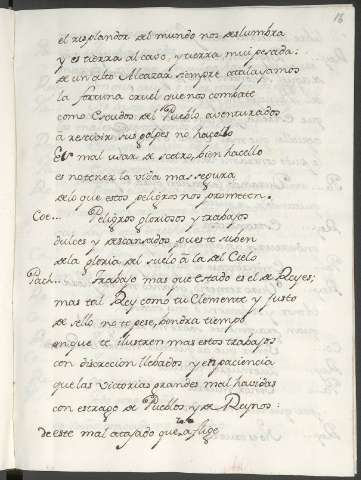 16
el resplandor del mundo nos deslumbra
y es tierra al cavo, y tierra mui pesada:
de un alto Alcazar siempre atalayamos
la fortuna cruel que nos combate
como Escudos del Pueblo aventurados
à rescivir sus golpes no hacello
Es mal usar de scetro, bien hacello
es no tener la vida mas segura
de lo que estos peligros nos prometen.
Coe... Peligros gloriosos y trabajos
dulces y descansados, pues te suben
de la gloria del suelo à la del Cielo
Pach... Trabajo mas que estado es el de Reyes;
mas tal Rey como tu Clemente y justo
de sello no te pese, bendra tiempo
en que te ilustren mas estos trabajos
con discrecion llebados y en paciencia
que las Victorias grandes mal havidas
con estrago de Pueblos y de Reynos:
de este mal atajado que aflige